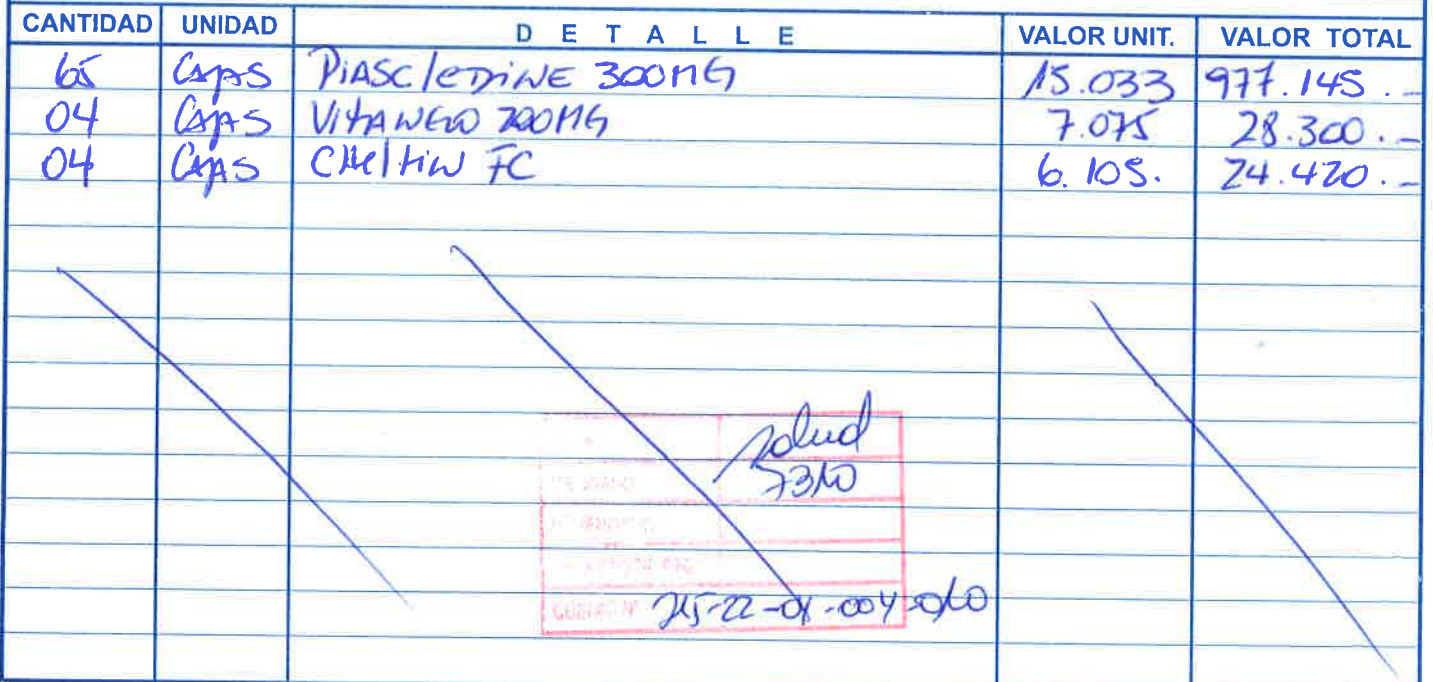 CANTIDAD UNIDAD DETALLE VALOR UNIT. VALOR TOTAL
65 Cajas PiASCleDiNE 300MG 15.033 977.145.-
04 Cajas VitANGO 200MG 7.075 28.300.-
04 CAJAS CHeltiN FC 6.105. 24.420.-
salud
7310
215-22-04-004-010